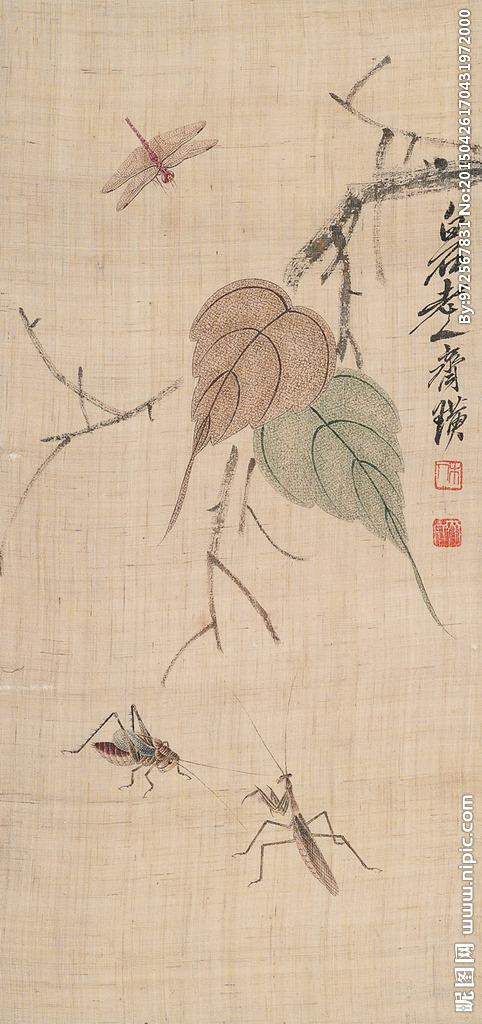 白石老人齊璜
By:972567831 No:20150426170431972000
昵图网 www.nipic.com